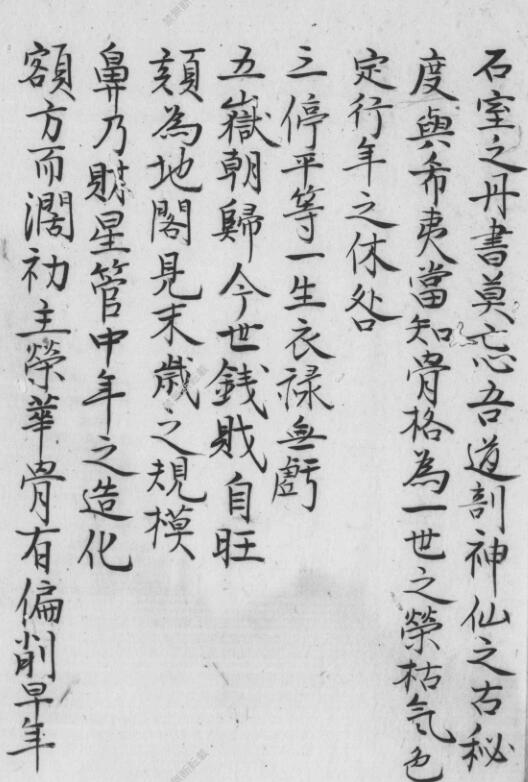 石室之丹書莫忘吾道剖神仙之古秘
度與希夷當知骨格為一世之榮枯气色
定行年之休咎
三停平等一生衣禄無虧
五嶽朝歸今世銭財自旺
頦為地閣見末歲之規模
鼻乃財星管中年之造化
額方而濶初主榮華骨有偏削早年